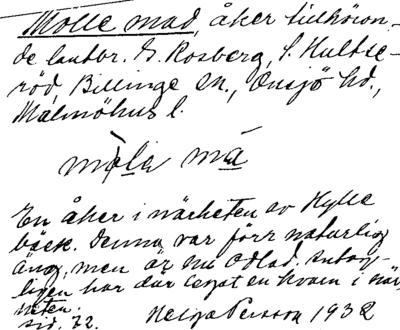 Molle mad, åker tillhöran-
de lantbr. G. Rosberg, S. Hultse-
röd, Billinge sn., Onsjö hd.,
Malmöhus l.
möla må
En åker i närheten av Hylle
bäck. Denna var förr naturlig
äng, men är nu odlad. Antag-
ligen har där legat en kvarn i när-
heten.
sid. 72. Helga Persson 1932